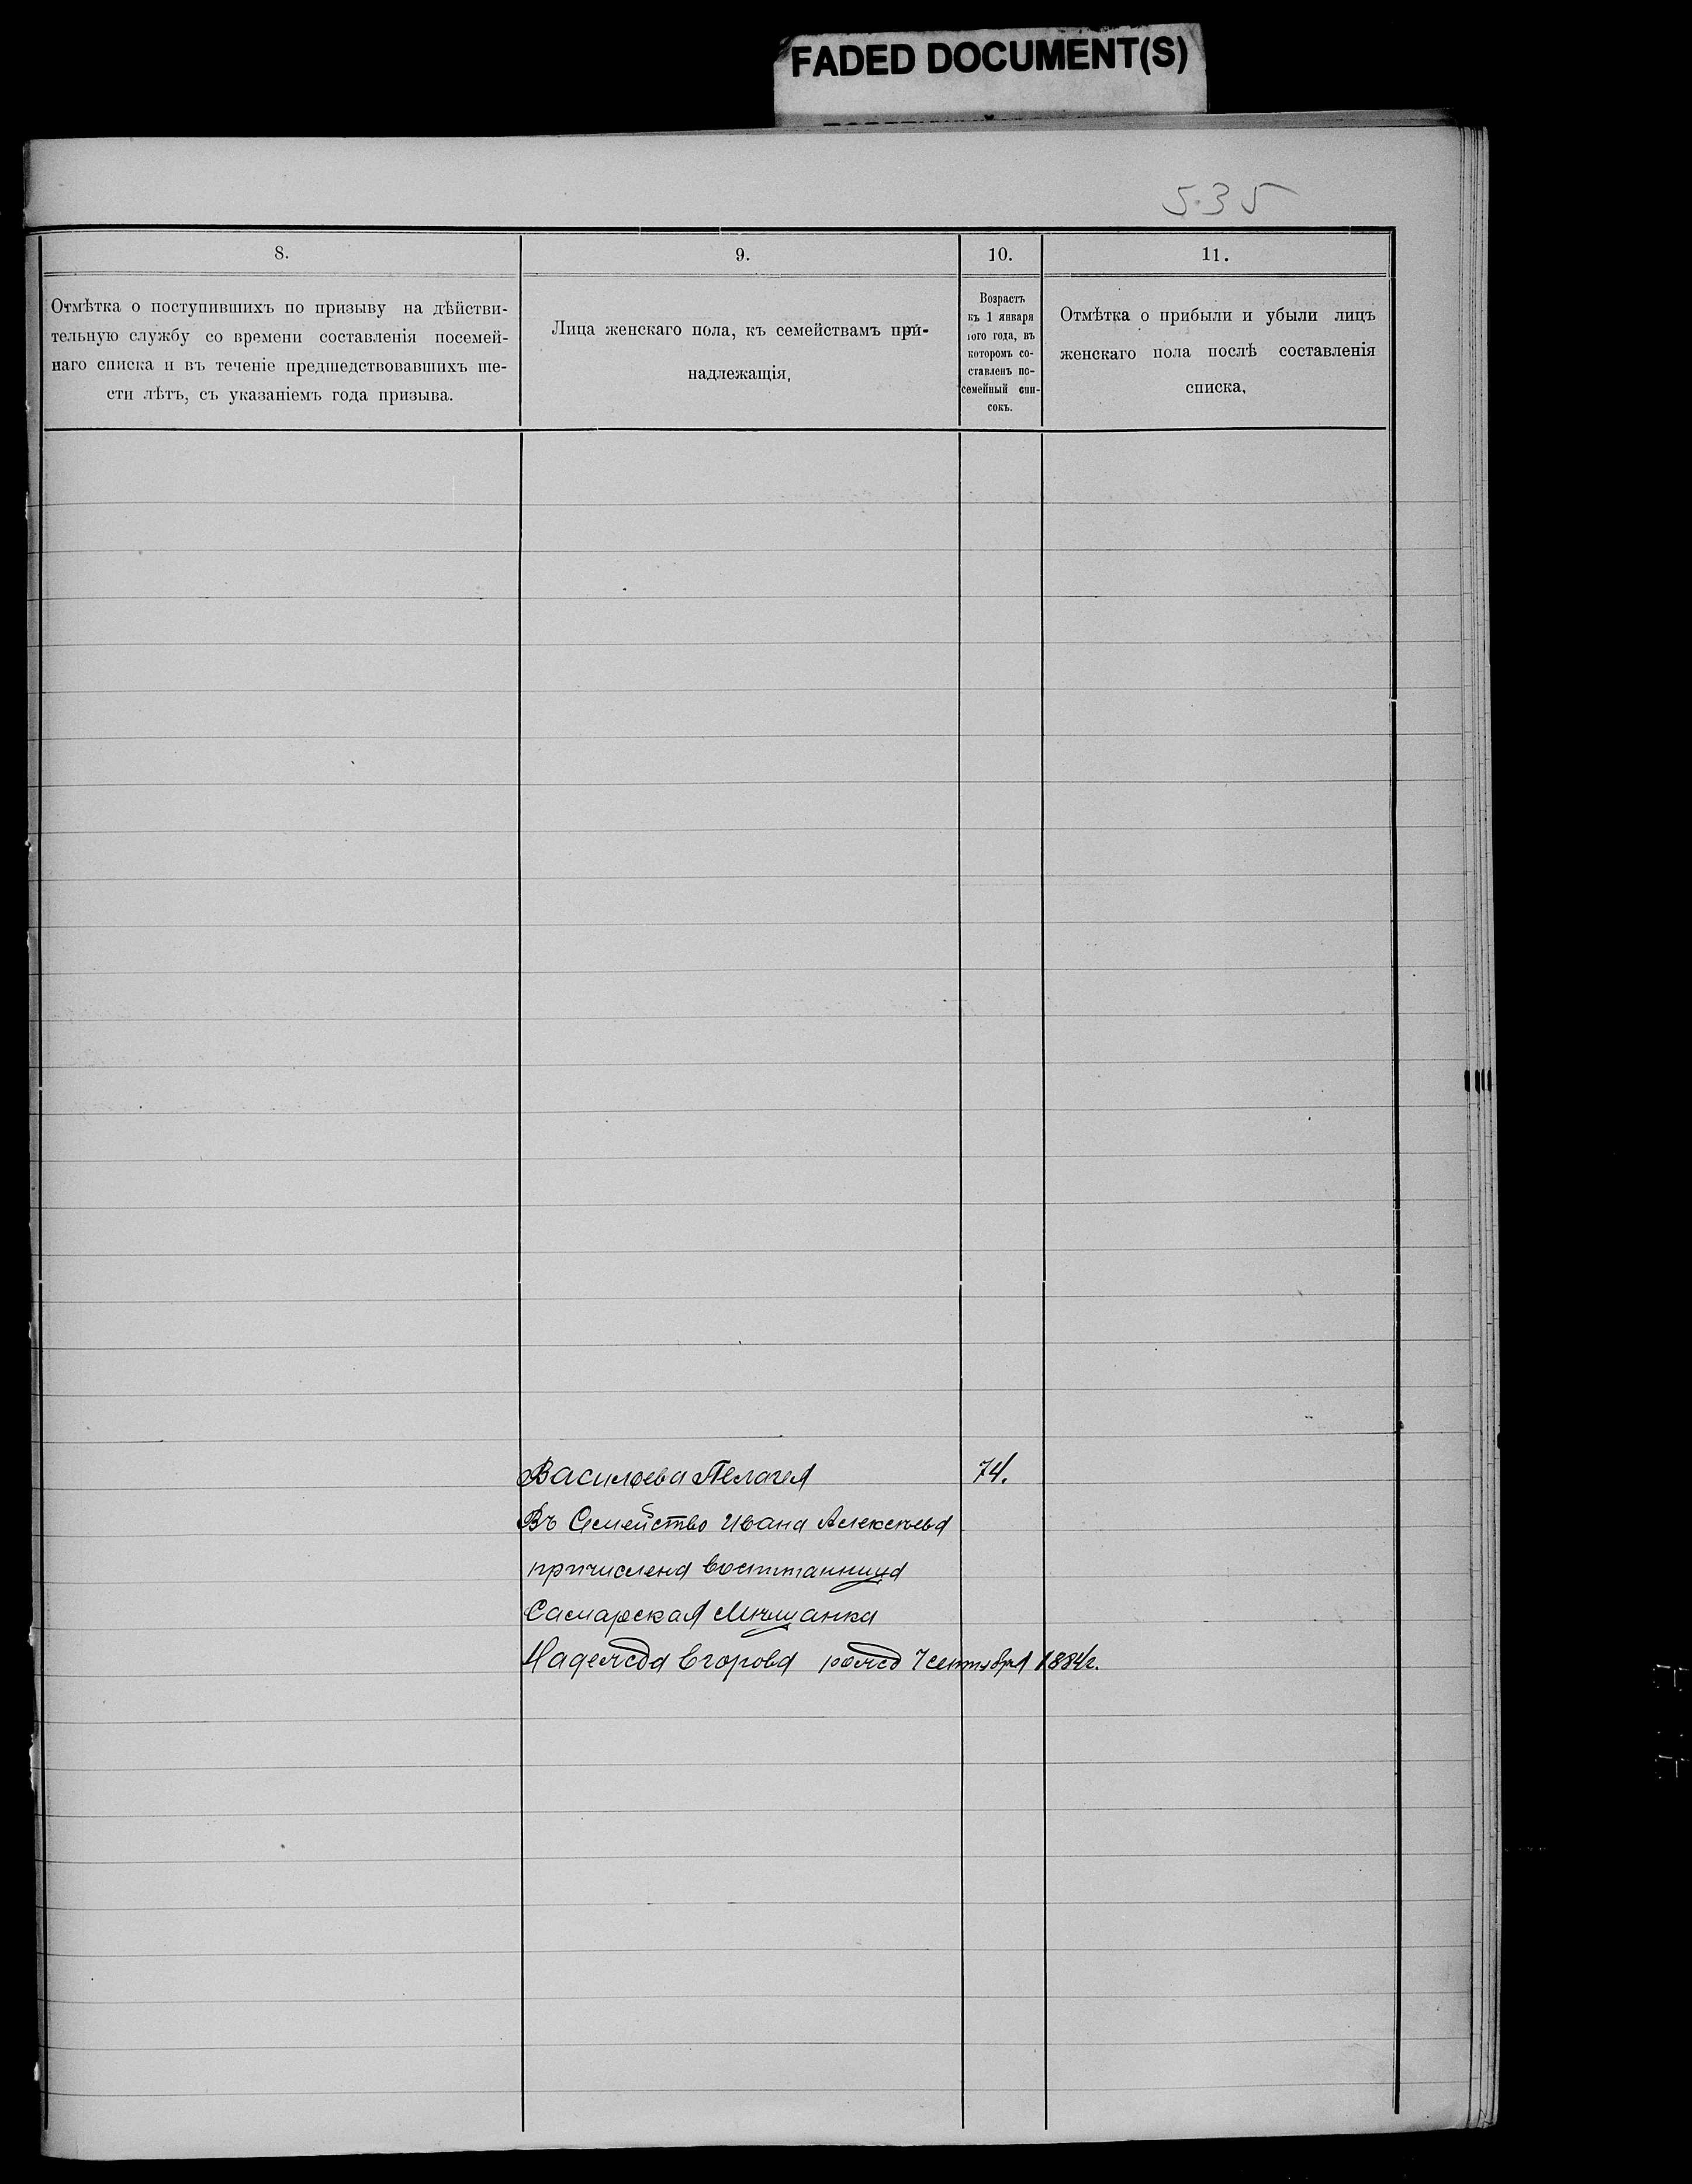 FADED DOCUMENT(S)
535
8.
9.
10.
11.
Отмѣтка о поступившихъ по призыву на дѣйстви-
тельную службу со времени составленія посемей-
наго списка и въ теченіе предшедствовавшихъ ше-
сти лѣтъ, съ указаніемъ года призыва.
Лица женскаго пола, къ семействамъ при-
надлежащія,
Возрастъ
къ 1 января
того года, въ
которомъ со-
ставленъ по-
семейный спи-
сокъ.
Отмѣтка о прибыли и убыли лицъ
женскаго пола послѣ составленія
списка,
Васильева Пелагея 74.
Въ Семейство Ивана Алексѣева
причислена воспитанница
Самарская Мѣщанка
Надежда Егорова рожд 7 сентября 1884 г.